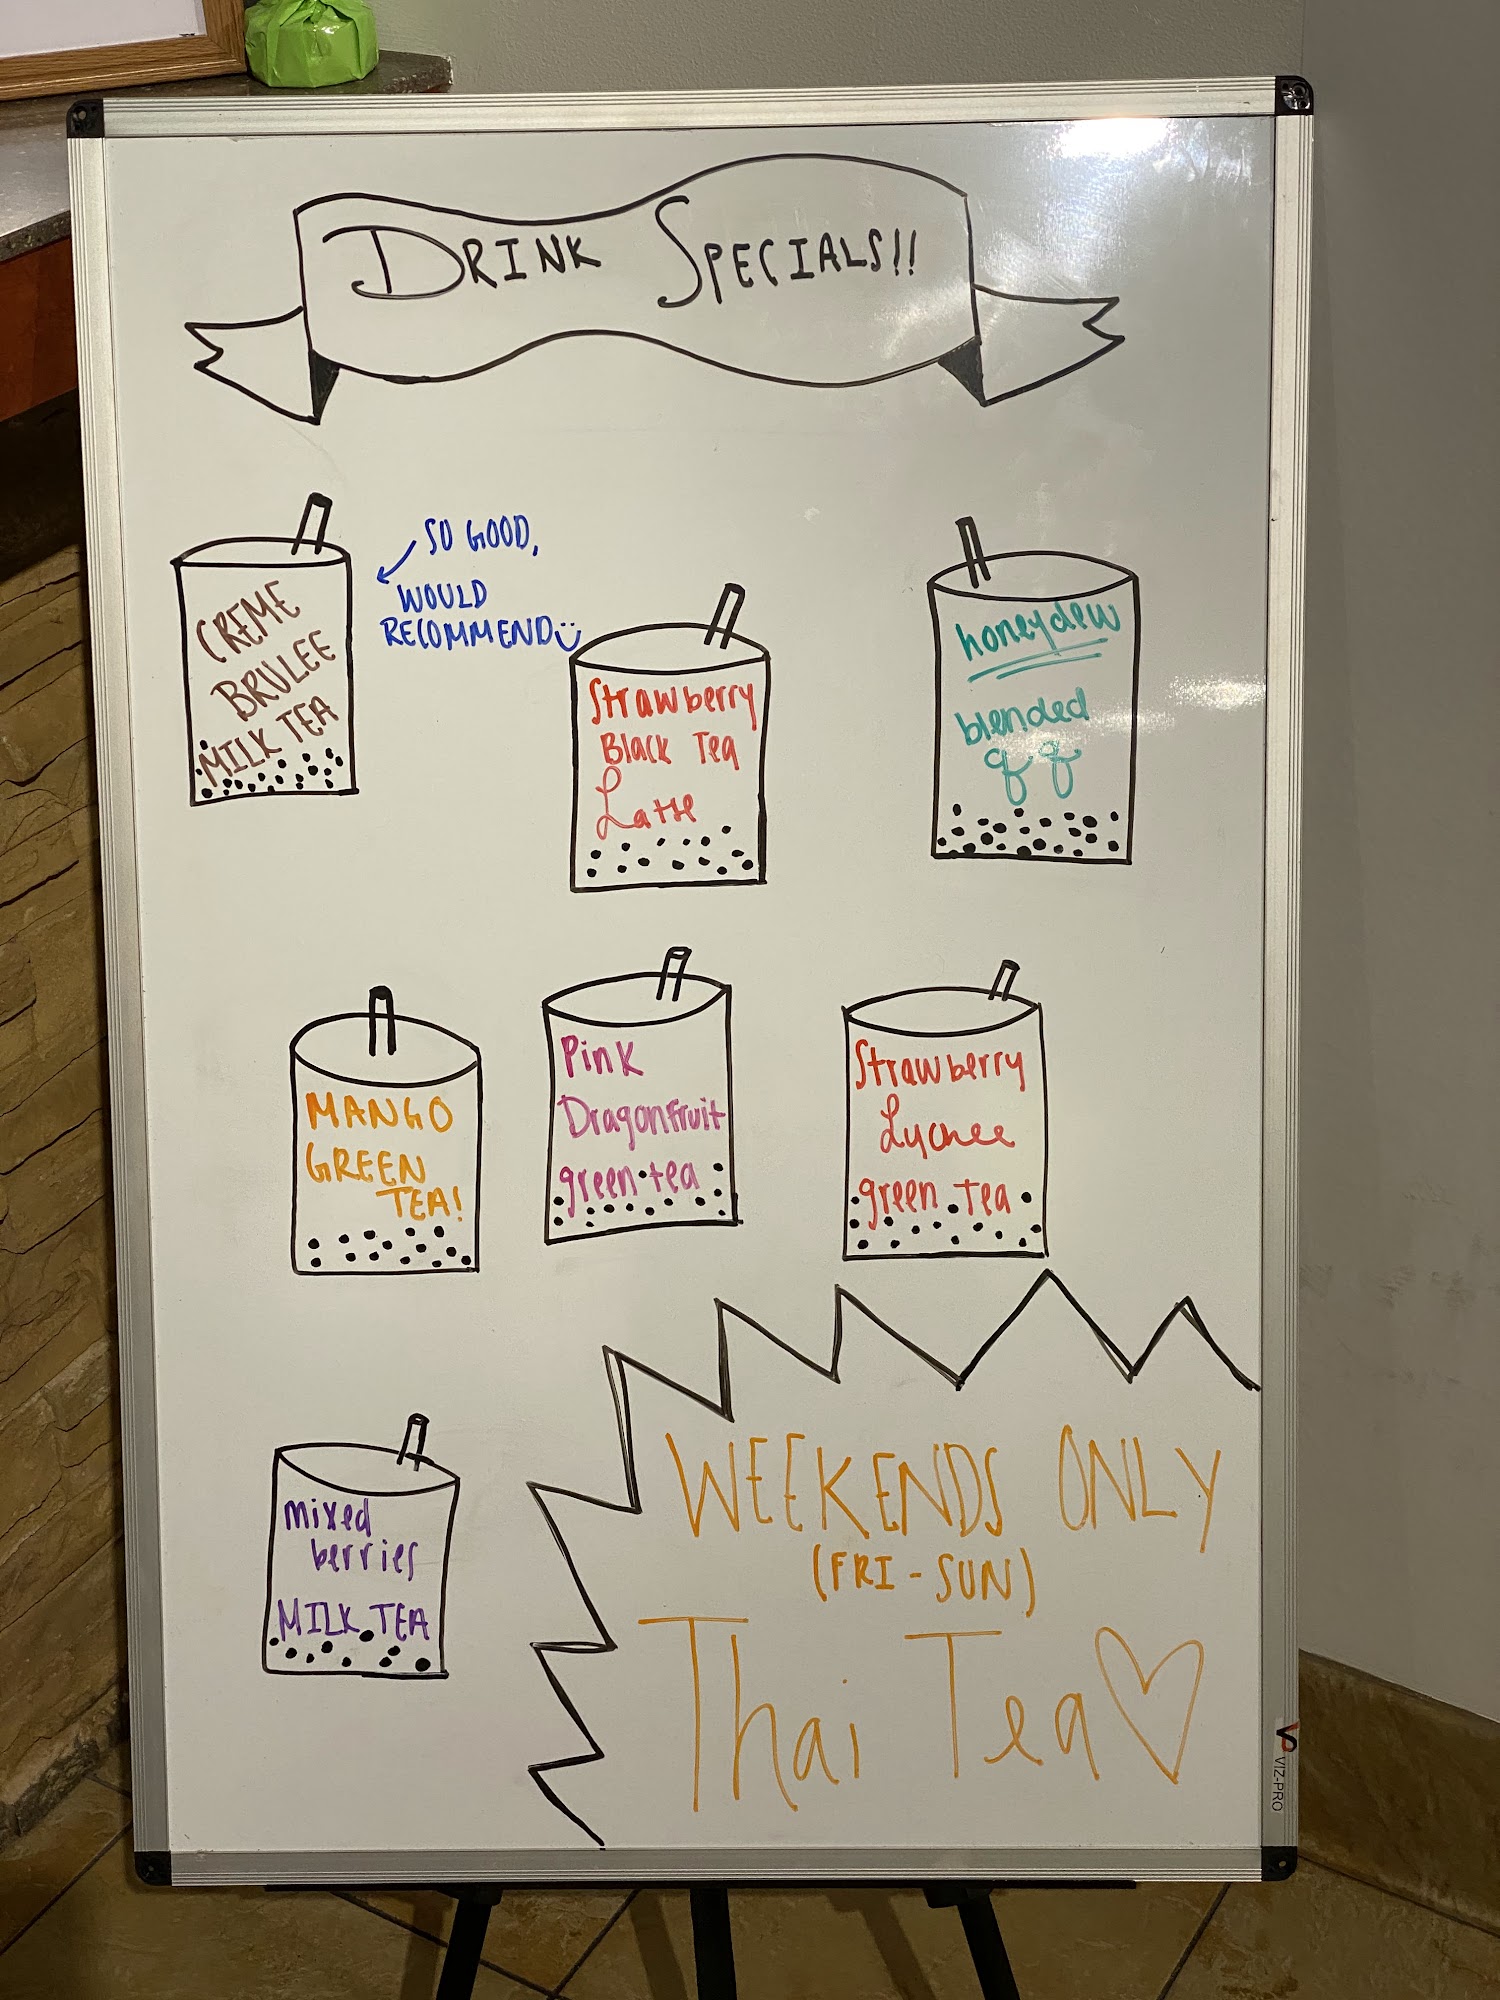 DRINK SPECIALS!!
CREME
BRULEE
MILK TEA
SO GOOD,
WOULD
RECOMMEND
Strawberry
Black Tea
Latte
honeydew
blended
qq
MANGO
GREEN
TEA!
Pink
Dragonfruit
green tea
Strawberry
Lychee
green tea
mixed
berries
MILK TEA
WEEKENDS ONLY
(FRI-SUN)
Thai Tea
VIZ-PRO